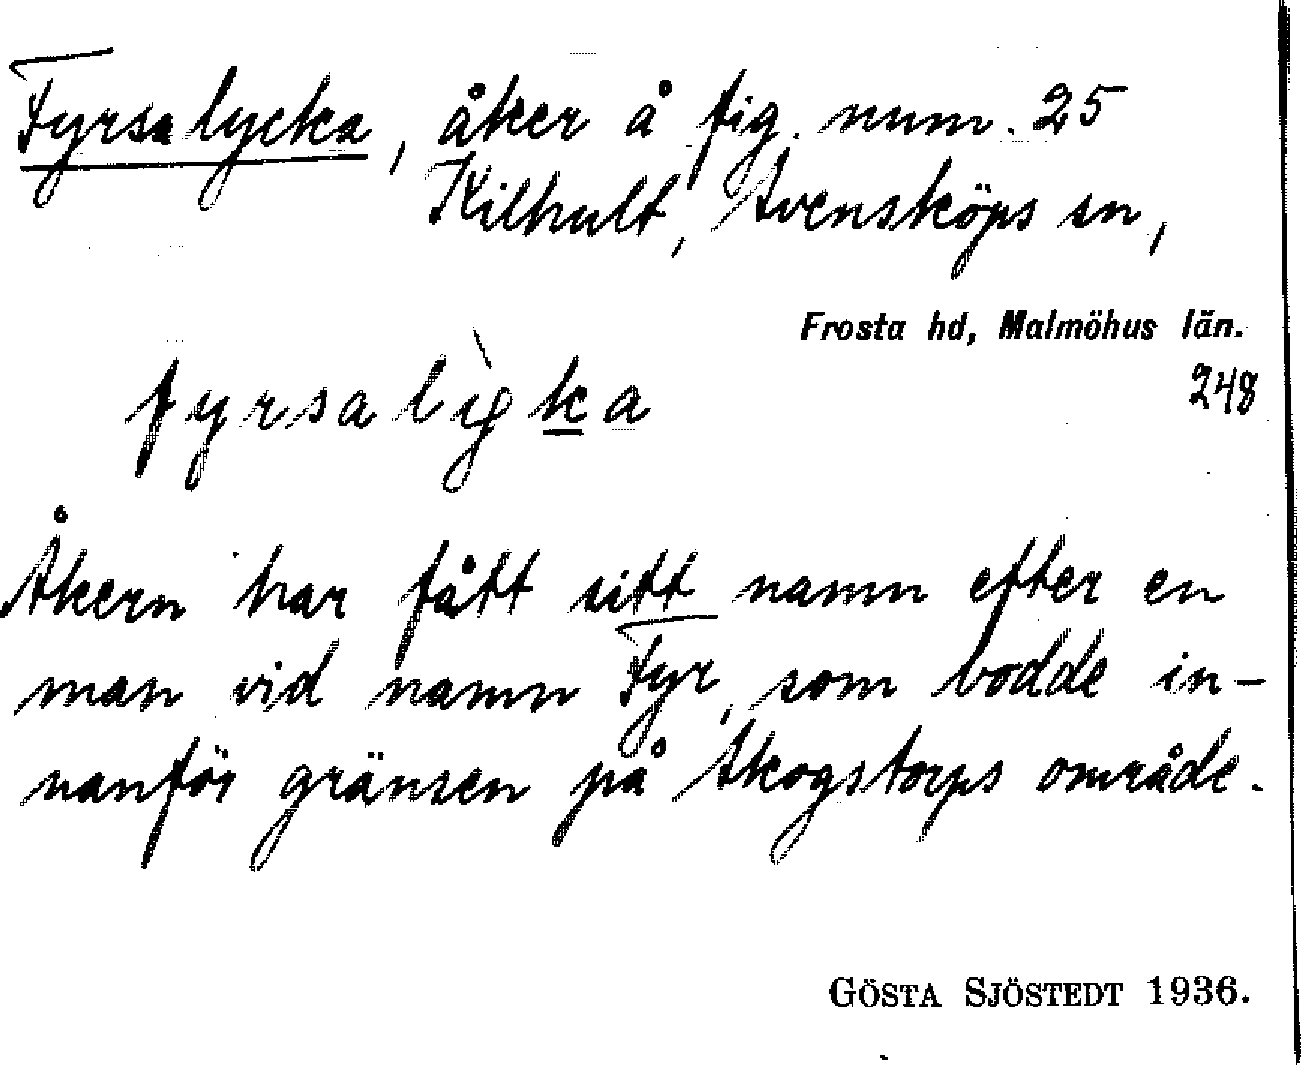 Fyrsalycka, åker å fig. num. 25
Kilhult, Svensköps sn,
Frosta hd, Malmöhus län.
248
fyrsalỳka
Åkern har fått sitt namn efter en
man vid namn Fyr, som bodde in-
nanför gränsen på Skogstorps område.
GÖSTA SJÖSTEDT 1936.